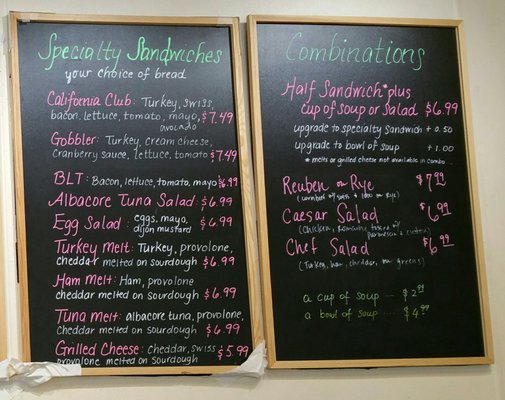 Specialty Sandwiches
your choice of bread
California Club: Turkey, swiss,
bacon, lettuce, tomato, mayo, $7.49
avocado
Gobbler: Turkey, cream cheese,
cranberry sauce, lettuce, tomato $7.49
BLT: Bacon, lettuce, tomato, mayo $6.99
Albacore Tuna Salad: $6.99
Egg Salad: eggs, mayo, $6.99
dijon mustard
Turkey Melt: Turkey, provolone,
cheddar melted on sourdough $6.99
Ham Melt: Ham, provolone
cheddar melted on sourdough $6.99
Tuna melt: albacore tuna, provolone,
cheddar melted on sourdough $6.99
Grilled Cheese: Cheddar, swiss $5.99
provolone melted on sourdough
Combinations
Half Sandwich* plus
cup of soup or Salad $6.99
upgrade to specialty sandwich + 0.50
upgrade to bowl of soup + 1.00
* melts or grilled cheese not available in combo
Reuben on Rye $7.99
(corned beef w/ swiss on rye)
Caesar Salad $6.99
(Chicken, romaine tossed w/
parmesan + croutons)
Chef Salad $6.99
(Turkey, ham, cheddar, greens)
a cup of soup ... $2.99
a bowl of soup ... $4.99